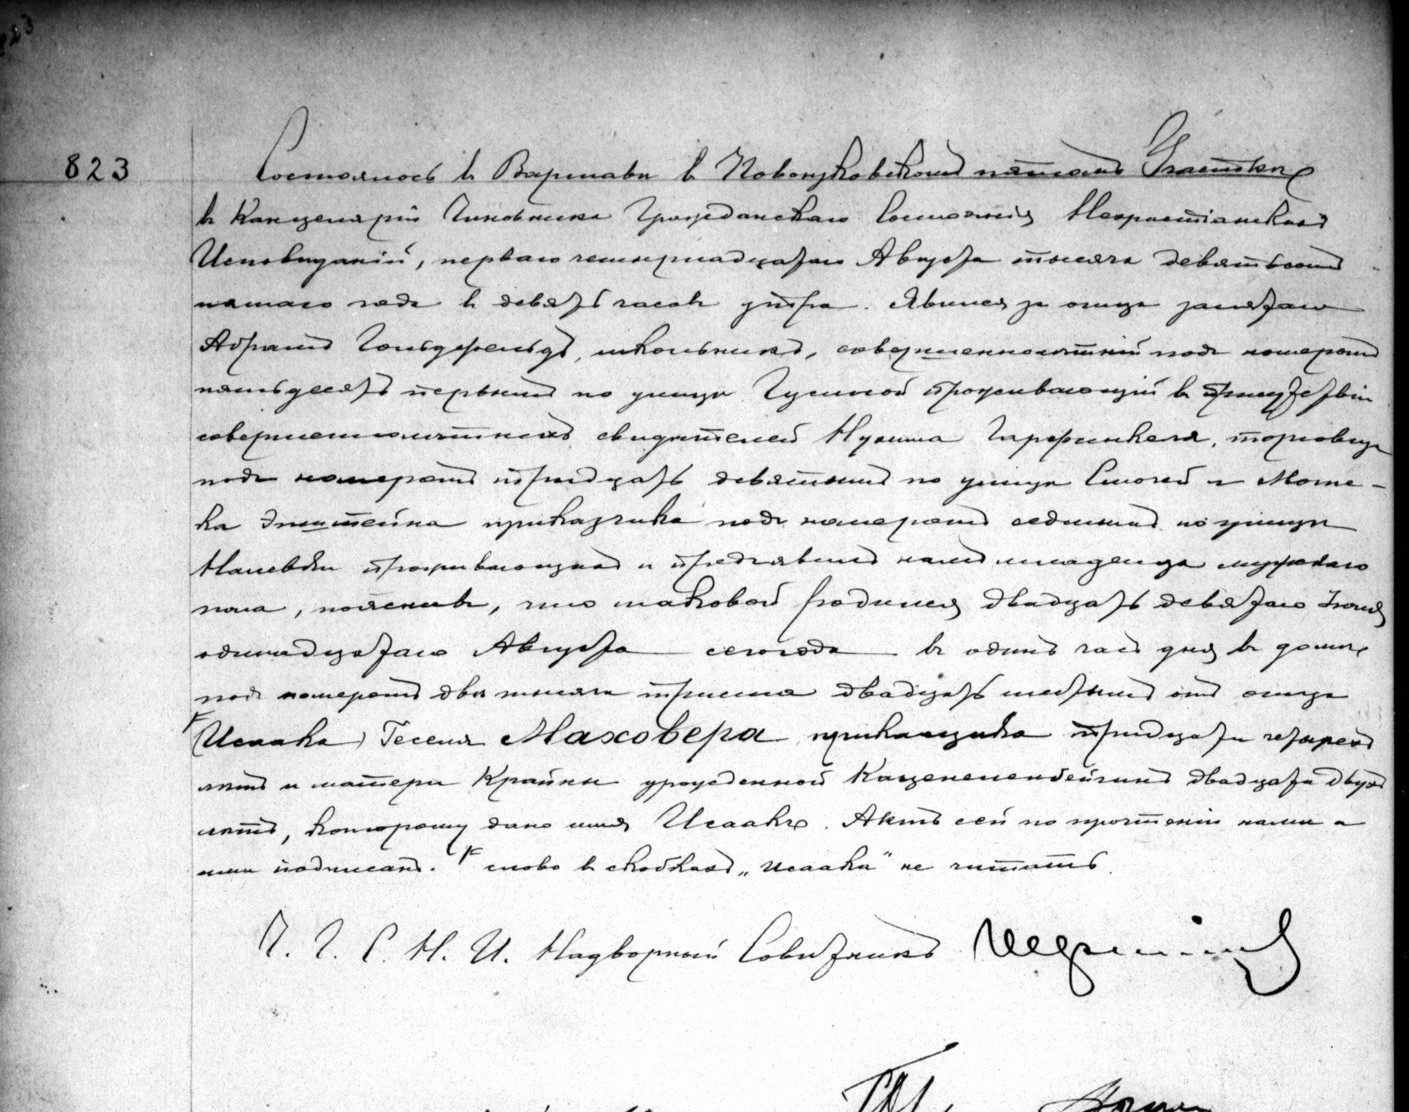 823
Состоялось в Варшаве в Новоязковском пятом Участке
в Канцелярiи Чиновника Гражданскаго Состоянiя Нехристiанских
Исповеданiй, перваго четырнадцатаго Августа тысяча девятьсот
года в девять часов утра. Явился за отца
Абрам Гольдфельд, школьник, совершеннолетнiй под номером
пятьдесят первым по улице Гусиной проживающiй в присутствiи
совершеннолетних свидетелей Нухима Гарфинкеля, торговца
под номером тридцать девятым по улице Смочей и Моше-
ка Эпштейна приказчика под номером седьмым по улице
Налевки проживающих и предъявил нам младенца мужскаго
пола, пояснив, что таковой родился двадцать девятаго Iюля
одиннадцатаго Августа сего года в один час дня в доме
под номером две тысячи триста двадцать шестым от отца
(Исаака) Геселя Маховера приказчика тридцати четырех
лет и матери Крайны урожденной Каценеленбейгин двадцати двух
лет, которому дано имя Исаак. Акт сей по прочтенiи нами и
ими подписан. слово в скобках „Исаака“ не читать.
Ч. Г. С. Н. И. Надворный Советник